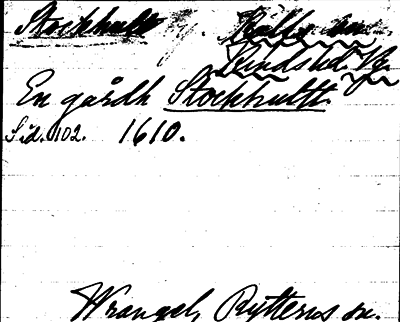 Stockhult Kalfs sn
Lindsled Vg.
En gårdh Stockhultt.
Sid. 102. 1610.
Wrangel, Rytterus sn.